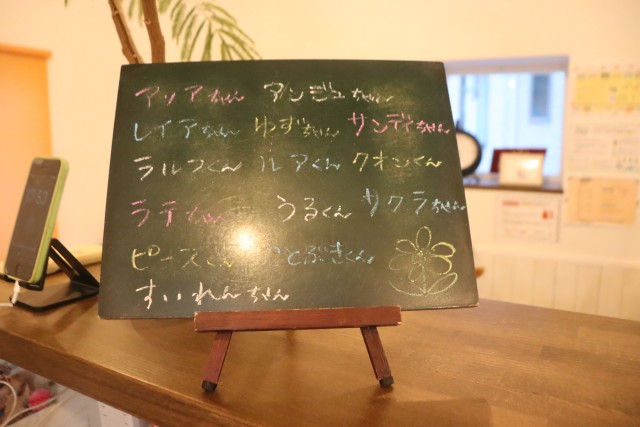 アリアちゃん アンジュちゃん
レイアちゃん ゆずちゃん サンディちゃん
ラルフくん ルアくん クオンくん
ラテちゃん うるくん サクラちゃん
ピースくん ことぶきくん
すいれんちゃん